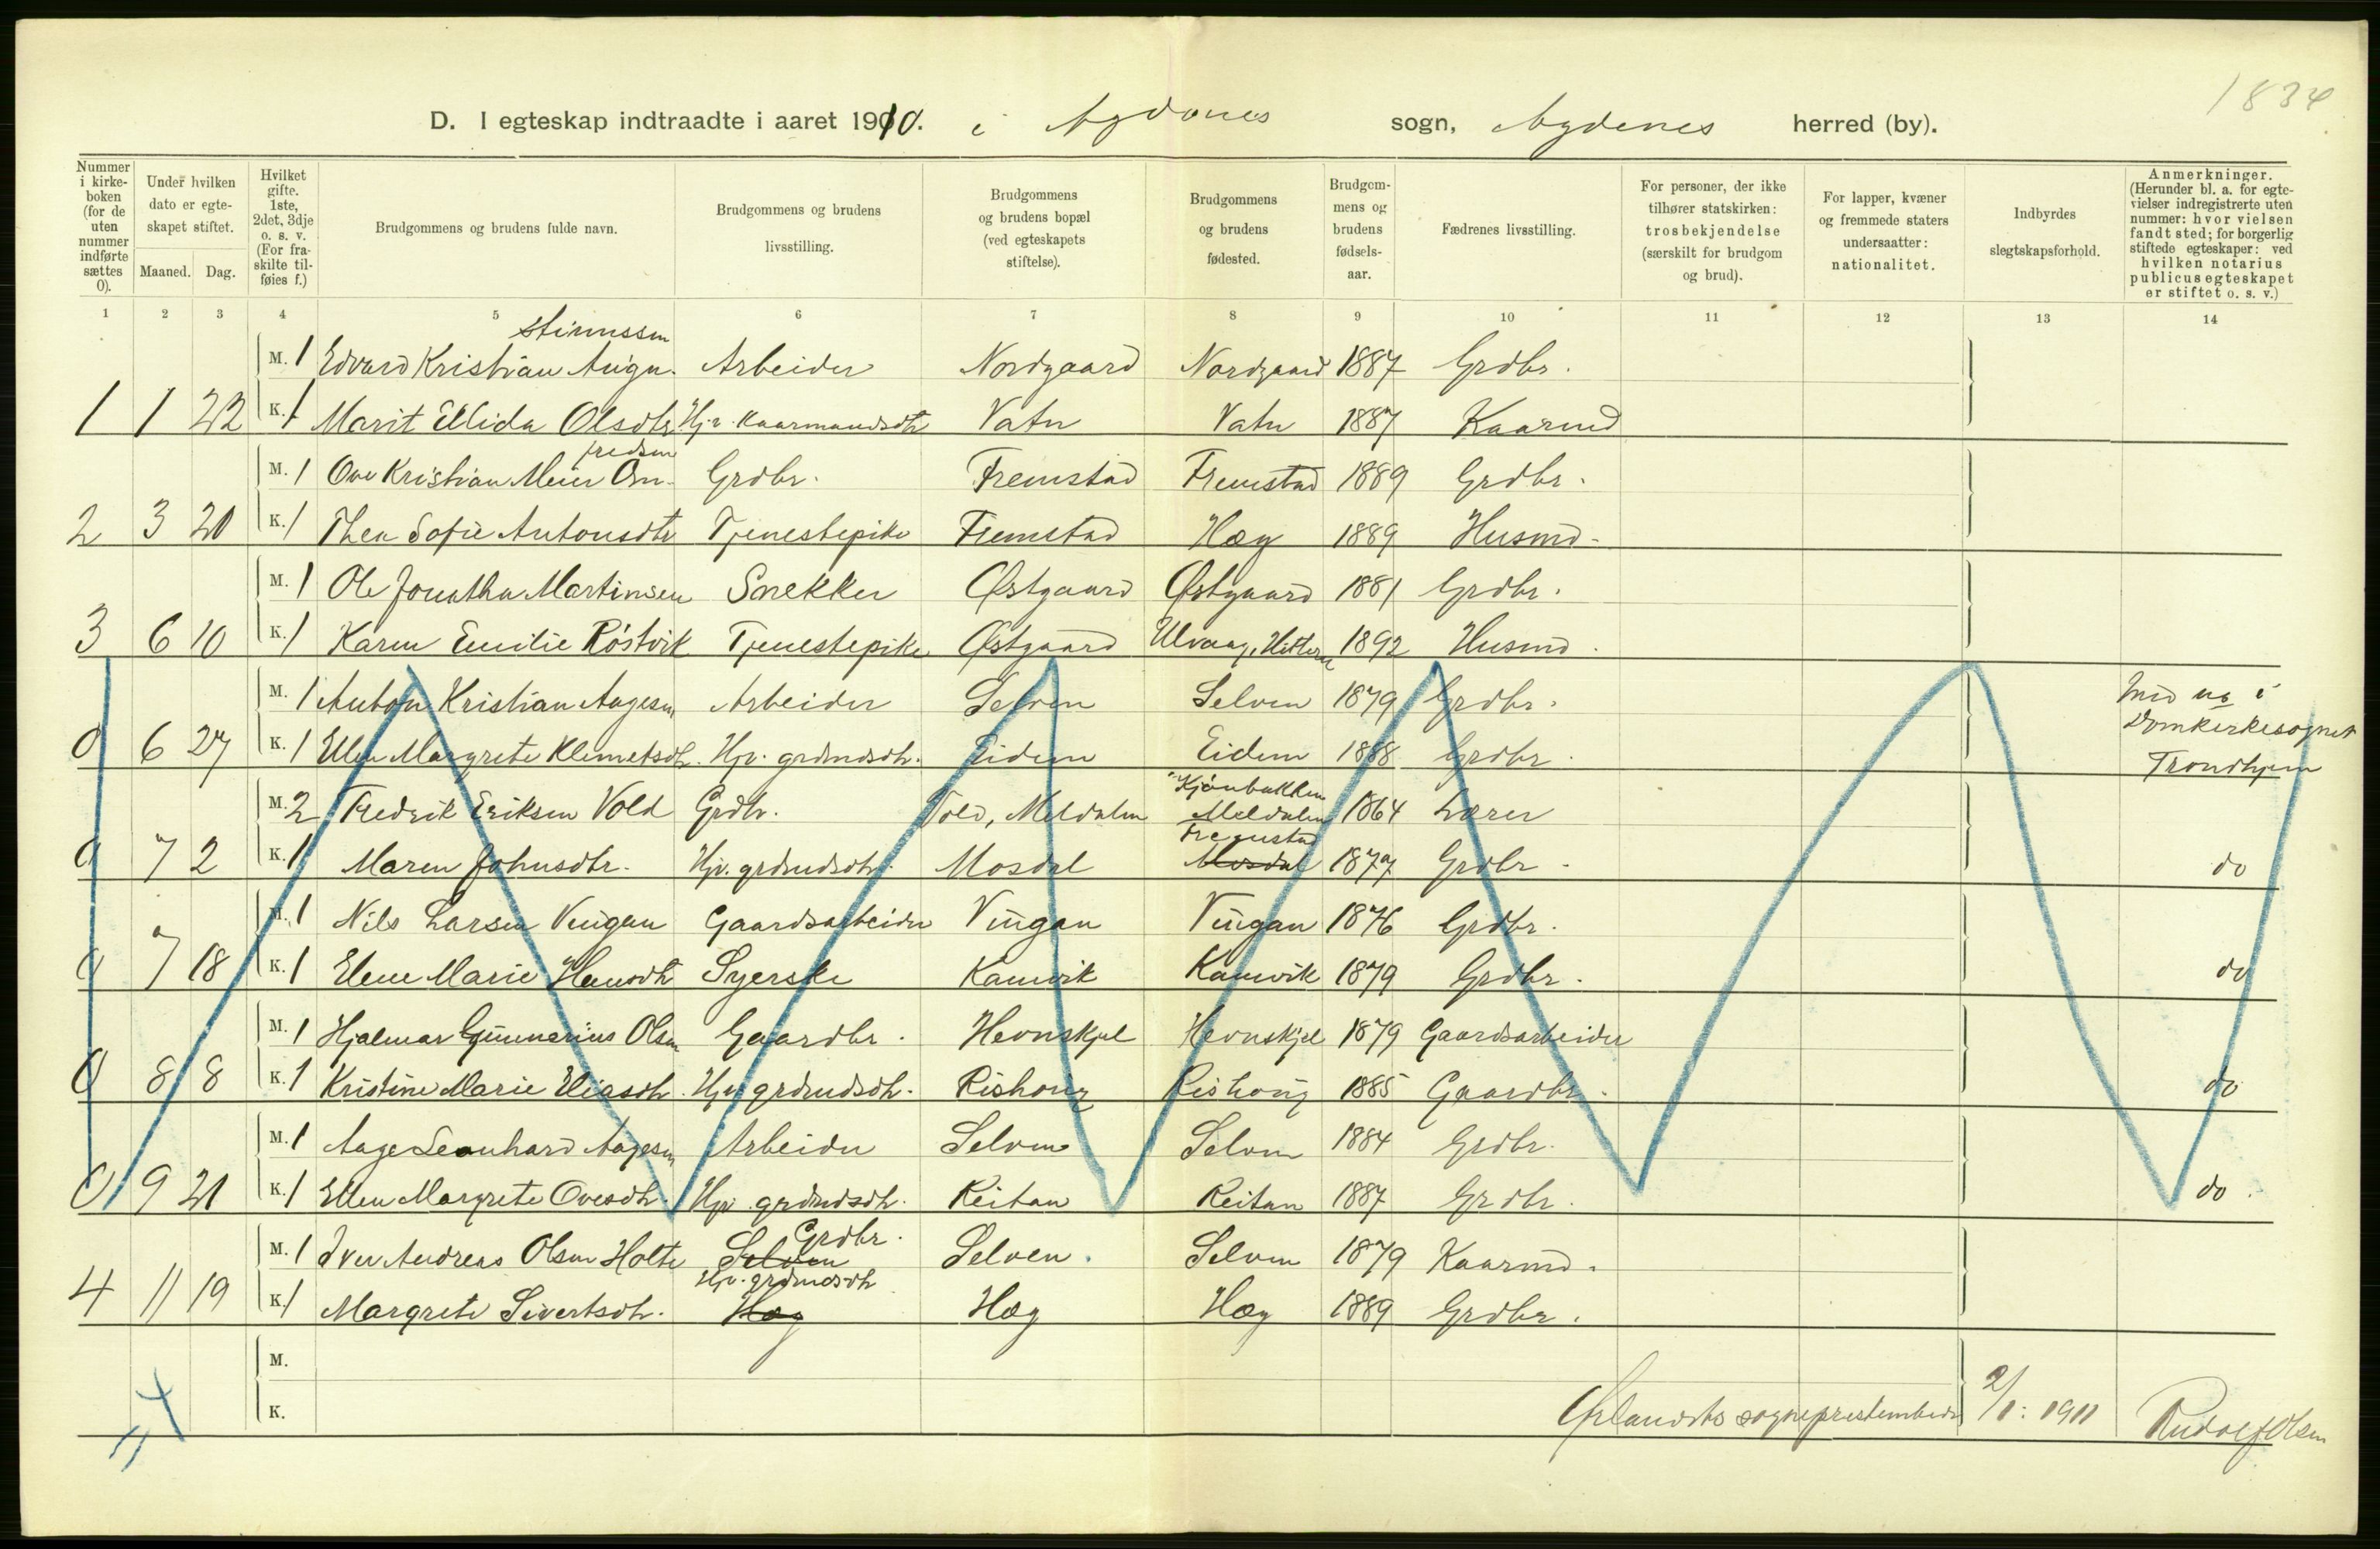 1834
D. I egteskap indtraadte i aaret 1910. i Agdenes sogn, Agdenes herred (by).
Nummer i kirkeboken (for de uten nummer indførte sættes 0).
Under hvilken dato er egteskapet stiftet.
Maaned. Dag.
Hvilket gifte. 1ste, 2det, 3dje o. s. v. (For fraskilte tilføies f.)
Brudgommens og brudens fulde navn.
Brudgommens og brudens livsstilling.
Brudgommens og brudens bopæl (ved egteskapets stiftelse).
Brudgommens og brudens fødested.
Brudgommens og brudens fødselsaar.
Fædrenes livsstilling.
For personer, der ikke tilhører statskirken: trosbekjendelse (særskilt for brudgom og brud).
For lapper, kvæner og fremmede staters undersaatter: nationalitet.
Indbyrdes slegtskapsforhold.
Anmerkninger. (Herunder bl. a. for egtevielser indregistrerte uten nummer: hvor vielsen fandt sted; for borgerlig stiftede egteskaper: ved hvilken notarius publicus egteskapet er stiftet o. s. v.)
1 2 3 4 5 6 7 8 9 10 11 12 13 14
M. 1 Edvard Kristian Augu- stinussen Arbeider Nordgaard Nordgaard 1887 Grdbr.
1 1 22 K. 1 Marit Elida Olsdtr. Hj.v. kaarmandsdtr Vatn Vatn 1887 Kaarmd
M. 1 Ove Kristian Meier Arn- fredsen Grdbr. Fremstad Fremstad 1889 Grdbr.
2 3 20 K. 1 Thea Sofie Antonsdtr Tjenestepike Fremstad Hæg 1889 Husmd.
M. 1 Ole Jonatha Martinsen Snekker Østgaard Østgaard 1881 Grdbr.
3 6 10 K. 1 Karen Emilie Røstvik Tjenestepike Østgaard Ulvaag, Hitteren 1892 Husmd.
M. 1 Anton Kristian Aagesen Arbeider Selven Selven 1879 Grdbr.
0 6 27 K. 1 Ellen Margrete Klemetsdtr. Hjv. grdmdsdtr. Eidem Eidem 1888 Grdbr. Ind no i Domkirkesognet Trondhjem
M. 2 Fredrik Eriksen Vold Grdbr. Vold, Meldalen Kjønbakken Meldalen 1864 Lærer
0 7 2 K. 1 Maren Johnsdtr. Hjv. grdmdsdtr. Mosdal Fremstad 1877 Grdbr. do
M. 1 Nils Larsen Vingan Gaardsarbeider Vingan Vingan 1876 Grdbr.
0 7 18 K. 1 Elene Marie Hansdtr Syerske Kamvik Kamvik 1879 Grdbr. do
M. 1 Hjalmar Gunnerius Olsen Gaardbr. Hevnskjel Hevnskjel 1879 Gaardsarbeider
0 8 8 K. 1 Kristine Marie Eliasdtr. Hjv. grdmdsdtr. Rishoug Rishoug 1885 Gaardbr. do
M. 1 Aage Leonhard Aagesen Arbeider Selven Selven 1884 Grdbr.
0 9 21 K. 1 Ellen Margrete Ovesdtr. Hjv. grdmdsdtr. Reitan Reitan 1887 Grdbr. do.
M. 1 Iver Andreas Olsen Holte Selven Grdbr. Selven. Selven 1879 Kaarmd.
4 11 19 K. 1 Margrete Sivertsdtr. Hjv. grdmdsdtr Hæg Hæg Hæg 1889 Grdbr.
M.
K.
4
Ørlandets sogneprestembede 2/1. 1911 Rudolf Olsen